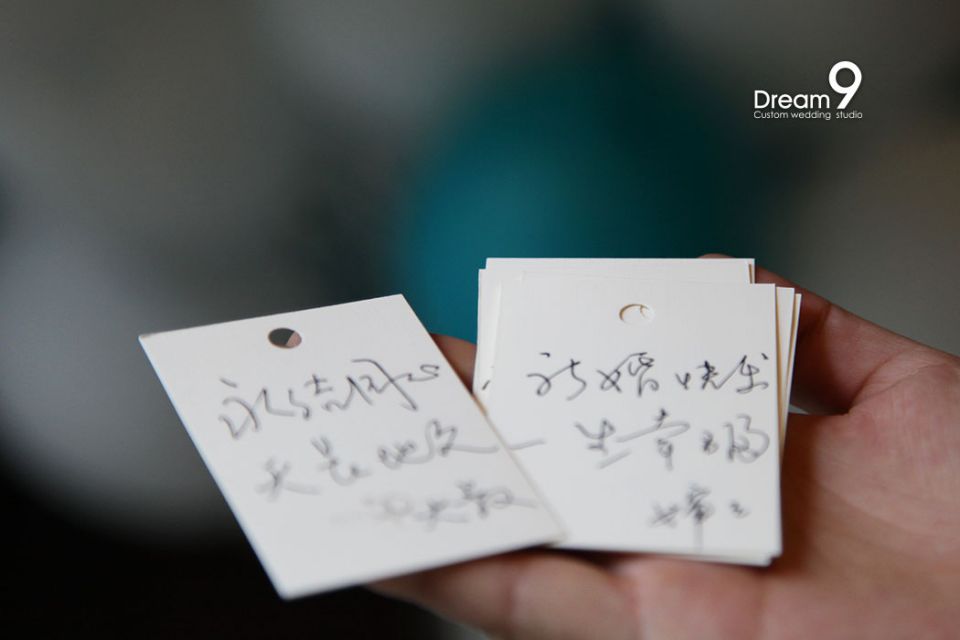 Dream9
Custom wedding studio
永结同心
天长地久
新婚快乐
一生幸福